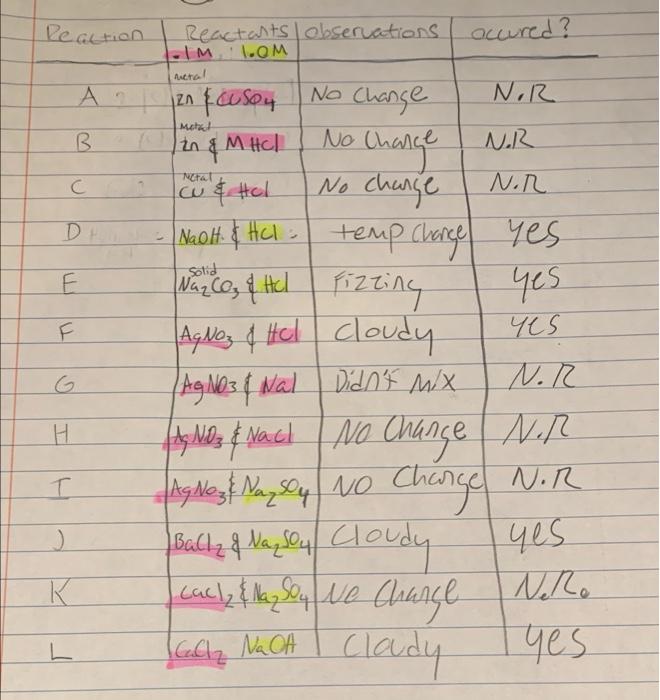 Reaction Reactants observations occured?
.1M 1.0M
metal
A Zn & CuSO4 No Change N.R
Metal
B Zn & M HCl No Change N.R
Metal
C Cu & HCl No change N.R
D NaOH & HCl temp change yes
Solid
E Na2CO3 & HCl Fizzing yes
F AgNO3 & HCl Cloudy yes
G AgNO3 & NaI Didn't Mix N.R
H AgNO3 & NaCl No Change N.R
I AgNO3 & Na2SO4 NO Change N.R
J BaCl2 & Na2SO4 Cloudy yes
K CaCl2 & Na2SO4 No Change N.R.
L CaCl2 NaOH Cloudy yes